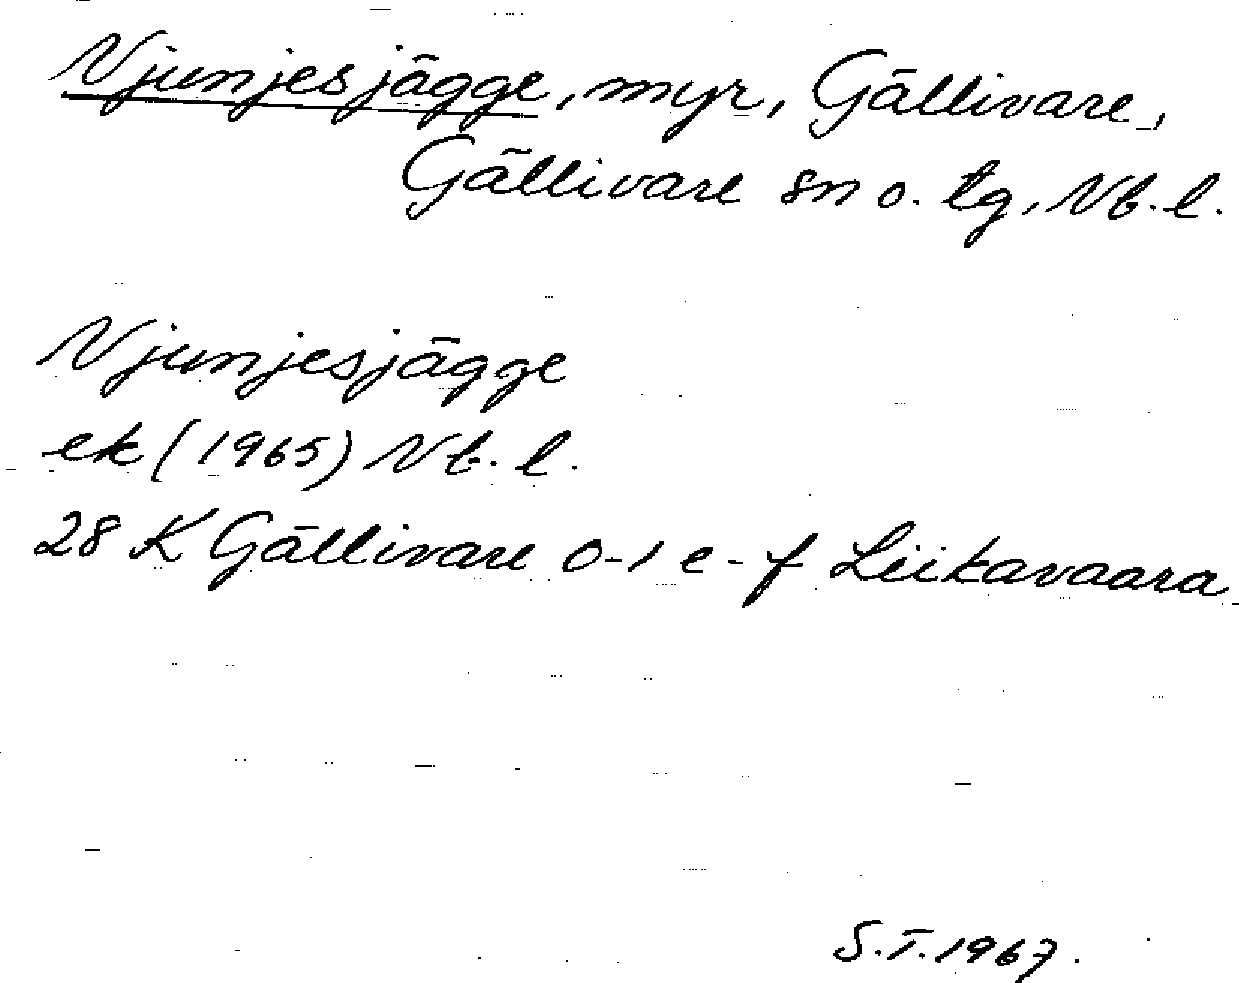 Njunjesjägge, myr, Gällivare,
Gällivare sn o. tg, Nb. l.
Njunjesjägge
ek (1965) Nb. l.
28 K Gällivare 0-1 e-f Liikavaara
S.I. 1967.